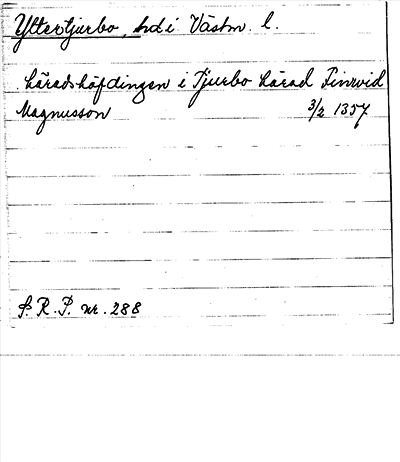 Yttertjurbo, hd i Västm. l.
häradshöfdingen i Tjurbo härad Finvid
Magnusson 3/2 1357
S. R. P. nr. 288